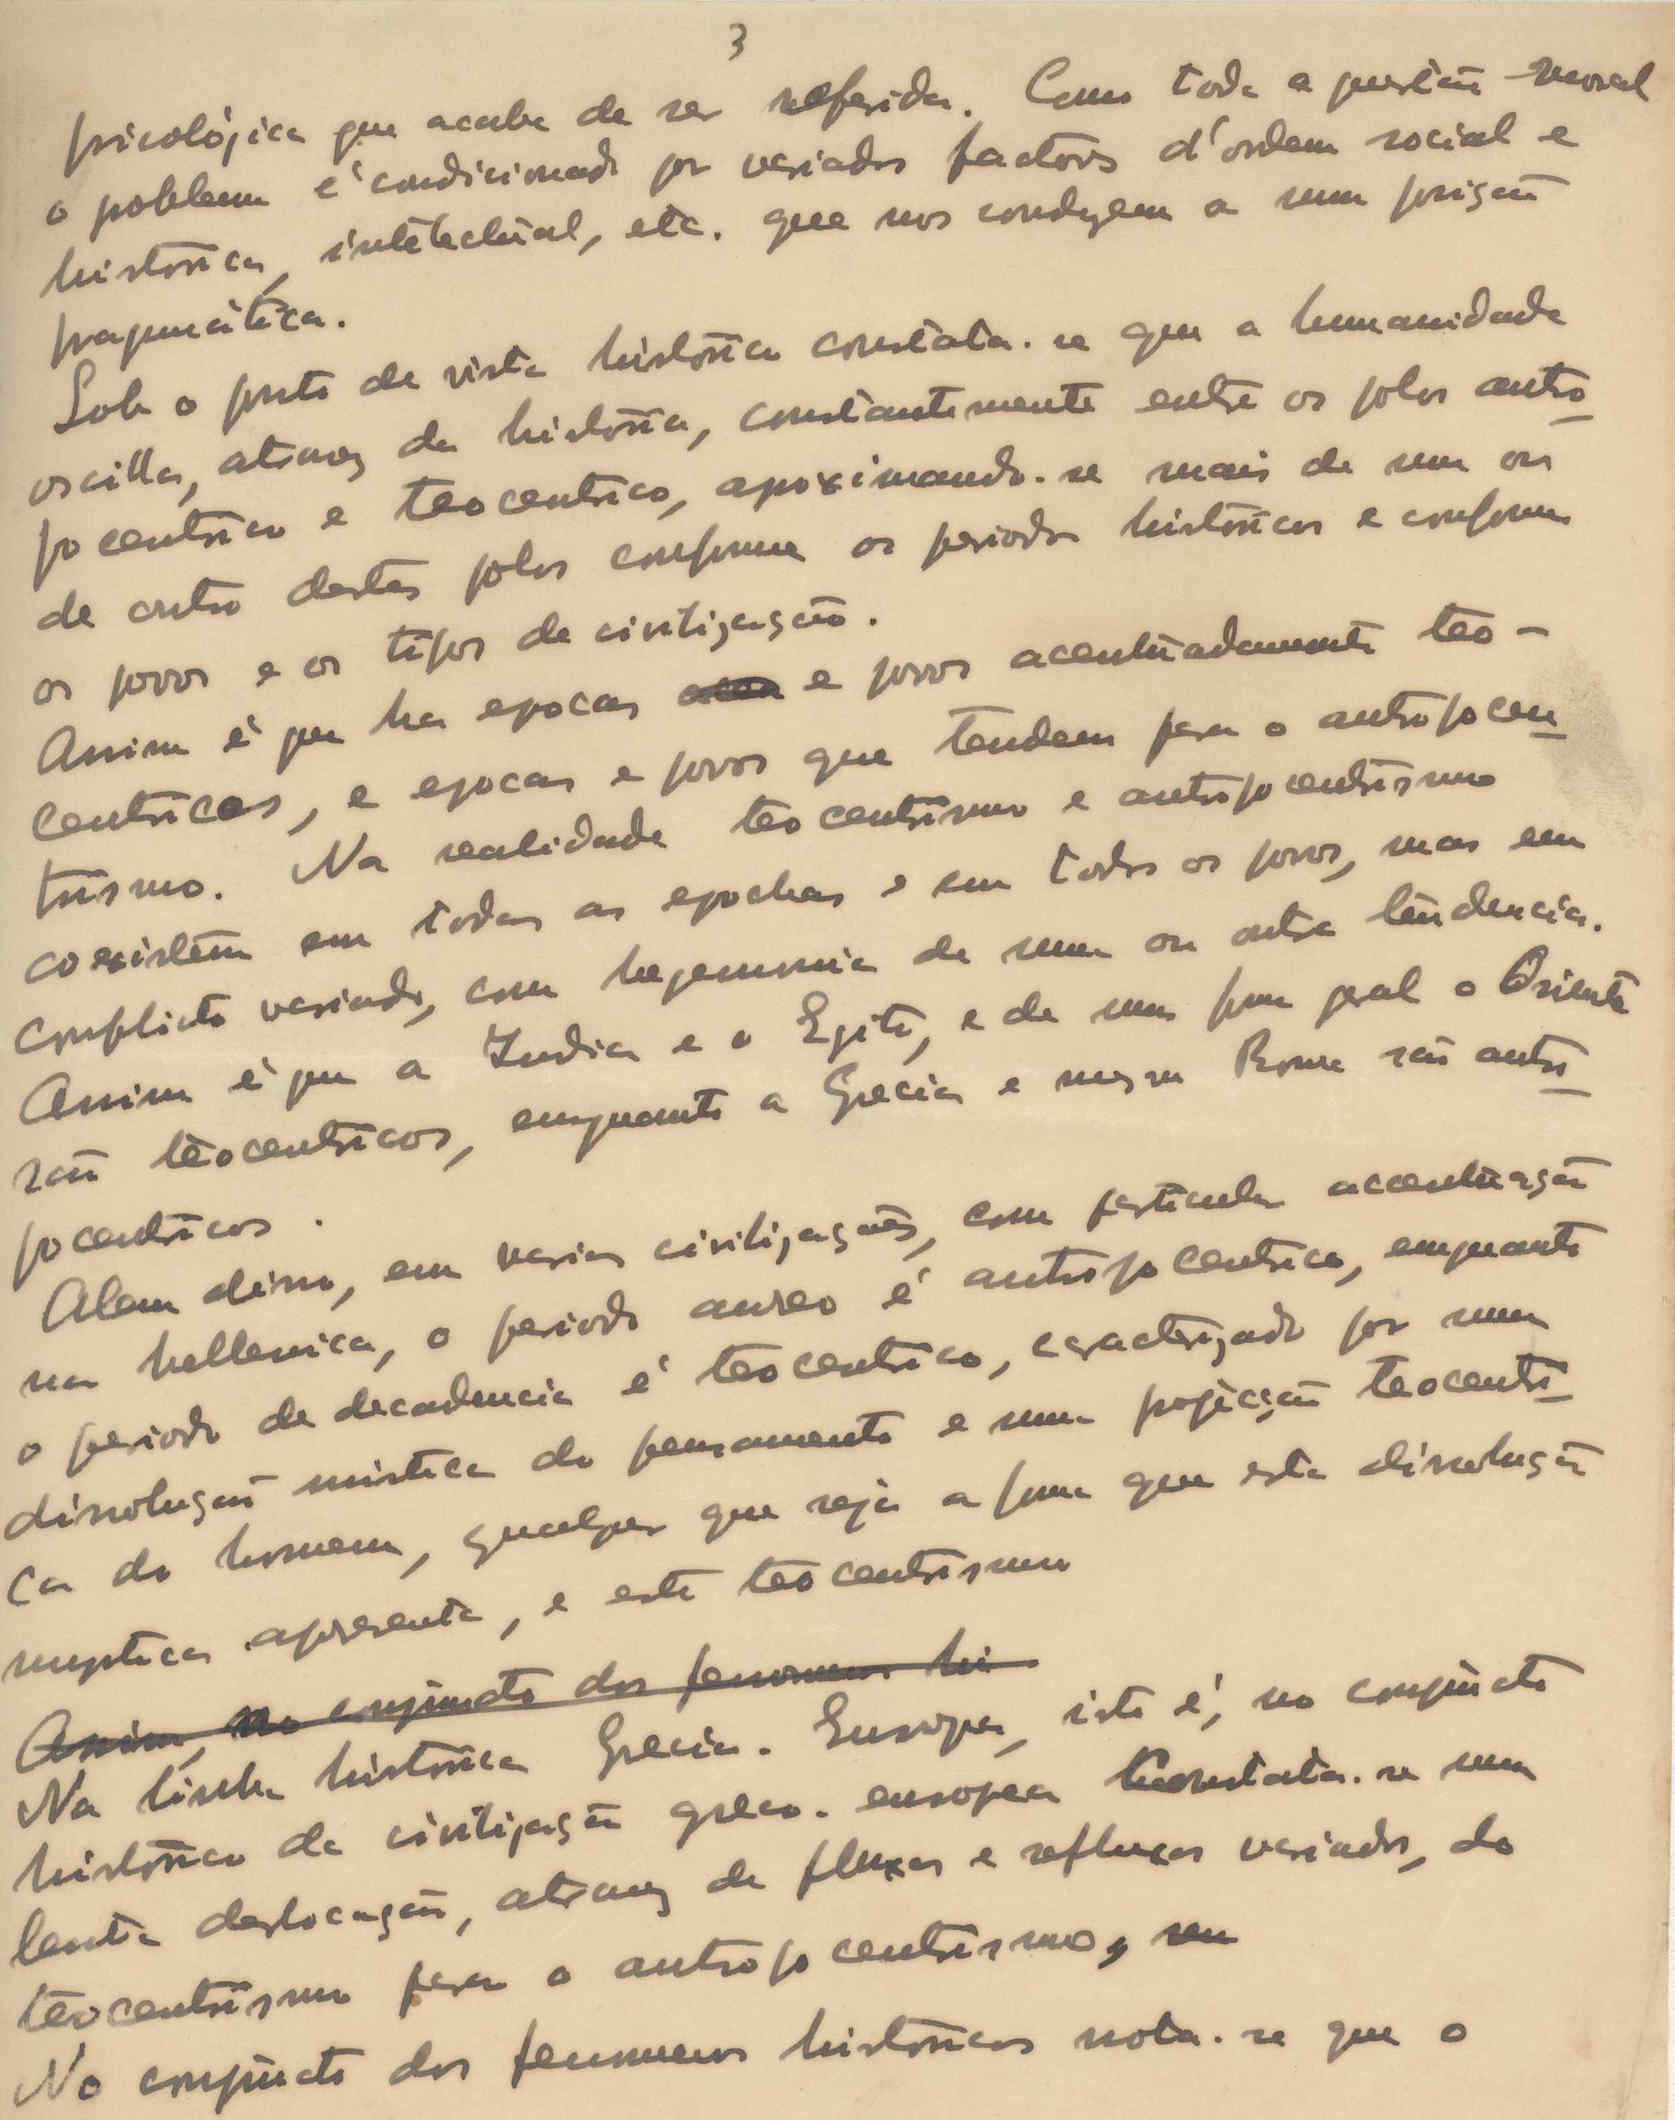 3
psicológica que acaba de ser referida. Como toda a questão moral
o problema é condicionado por variados factores d'ordem social e
histórica, intelectual, etc. que nos conduzem a uma posição
pragmática.
Sob o ponto de vista histórico constata-se que a humanidade
oscilla, atravez da história, constantemente entre os polos antro-
pocentrico e teocentrico, aproximando-se mais de um ou
de outro destes polos conforme os periodos históricos e conforme
os povos e os tipos de civilização.
Assim é que ha epocas e povos acentuadamente teo-
centricos, e epocas e povos que tendem para o antropocen-
trismo. Na realidade teocentrismo e antropocentrismo
coexistem em todas as epochas e em todos os povos, mas em
conflicto variado, com hegemonia de uma ou outra tendencia.
Assim é que a India e o Egito, e de um forma geral o Oriente
são teocentricos, emquanto a Grecia e mesmo Roma são antro-
pocentricos.
Alem disso, em varias civilizações, com particular accentuação
na hellenica, o periodo aureo é antropocentrico, emquanto
o periodo de decadencia é teocentrico, caracterizado por uma
dissolução mistica do pensamento e uma projecção teocentri-
ca do homem, qualquer que seja a forma que esta dissolução
mystica apresenta, e este teocentrismo
Assim, no conjuncto dos fenomenos hi
Na linha histórica Grecia-Europa, isto é, no conjuncto
histórico da civilização greco-europea constata-se uma
lenta deslocação, atravez de fluxos e refluxos variados, do
teocentrismo para o antropocentrismo, seu
No conjuncto dos fenomenos históricos nota-se que o